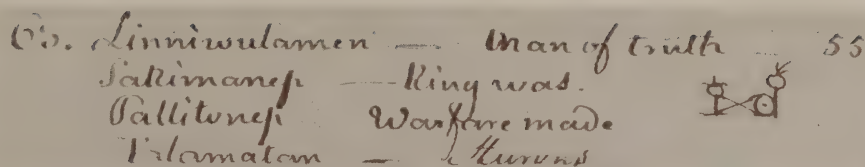 Linniwulamen — Man of truth — 55
Sakimanep — King was.
Pallitonep Warfare made
Talamatan — Hurons